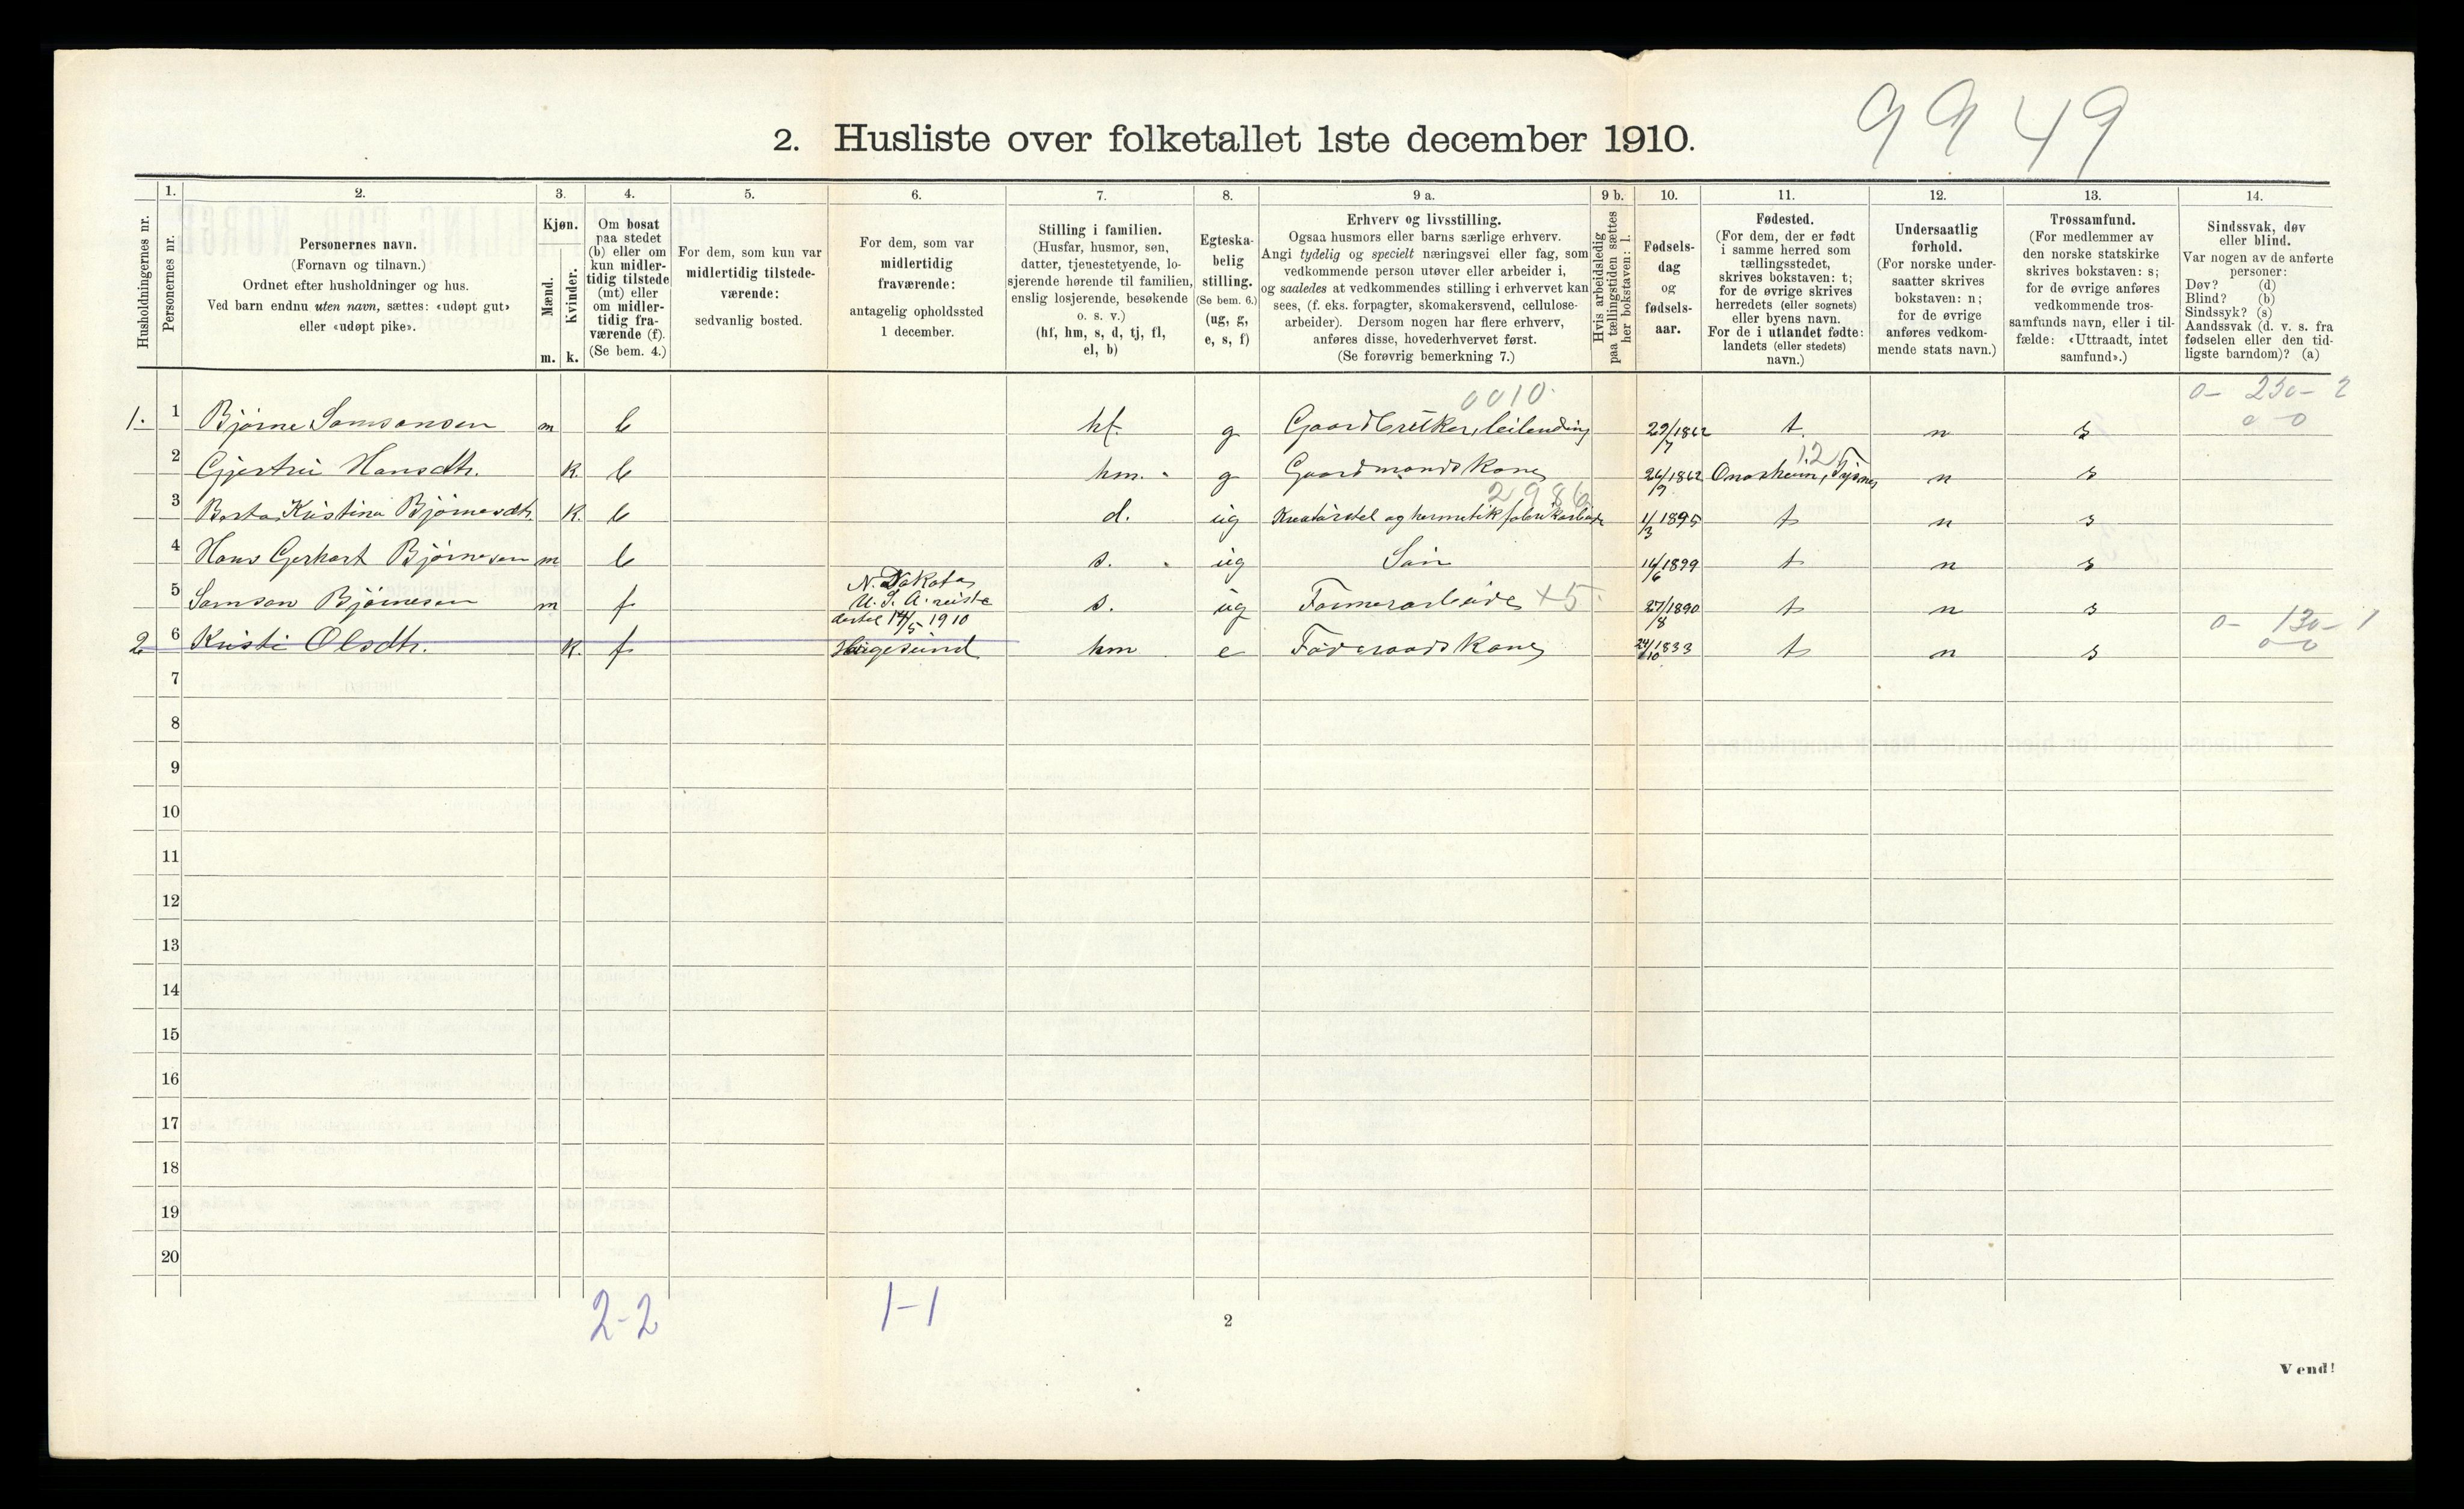 9 9 49
2. Husliste over folketallet 1ste december 1910.
Husholdningernes nr.
1.
Personernes nr.
2.
Personernes navn.
(Fornavn og tilnavn.)
Ordnet efter husholdninger og hus.
Ved barn endnu uten navn, sættes: «udøpt gut»
eller «udøpt pike».
3.
Kjøn.
Mænd.
Kvinder.
m. k.
4.
Om bosat
paa stedet
(b) eller om
kun midler-
tidig tilstede
(mt) eller
om midler-
tidig fra-
værende (f).
(Se bem. 4.)
5.
For dem, som kun var
midlertidig tilstede-
værende:
sedvanlig bosted.
6.
For dem, som var
midlertidig
fraværende:
antagelig opholdssted
1 december.
7.
Stilling i familien.
(Husfar, husmor, søn,
datter, tjenestetyende, lo-
sjerende hørende til familien,
enslig losjerende, besøkende
o. s. v.)
(hf, hm, s, d, tj, fl,
el, b)
8.
Egteska-
belig
stilling.
(Se bem. 6.)
(ug, g,
e, s, f)
9 a.
Erhverv og livsstilling.
Ogsaa husmors eller barns særlige erhverv.
Angi tydelig og specielt næringsvei eller fag, som
vedkommende person utøver eller arbeider i,
og saaledes at vedkommendes stilling i erhvervet kan
sees, (f. eks. forpagter, skomakersvend, cellulose-
arbeider). Dersom nogen har flere erhverv,
anføres disse, hovederhvervet først.
(Se forøvrig bemerkning 7.)
9 b.
Hvis arbeidsledig
paa tællingstiden sættes
her bokstaven: l.
10.
Fødsels-
dag
og
fødsels-
aar.
11.
Fødested.
(For dem, der er født
i samme herred som
tællingsstedet,
skrives bokstaven: t;
for de øvrige skrives
herredets (eller sognets)
eller byens navn.
For de i utlandet fødte:
landets (eller stedets)
navn.)
12.
Undersaatlig
forhold.
(For norske under-
saatter skrives
bokstaven: n;
for de øvrige
anføres vedkom-
mende stats navn.)
13.
Trossamfund.
(For medlemmer av
den norske statskirke
skrives bokstaven: s;
for de øvrige anføres
vedkommende tros-
samfunds navn, eller i til-
fælde: «Uttraadt, intet
samfund».)
14.
Sindssvak, døv
eller blind.
Var nogen av de anførte
personer:
Døv? (d)
Blind? (b)
Sindssyk? (s)
Aandssvak (d. v. s. fra
fødselen eller den tid-
ligste barndom)? (a)
0010
0- 230- 2
0-0
1. 1 Bjørne Samsonsen m b hf. g Gaardbruker, leilending 29/7 1862 t. n s
12
2 Gjertrui Hansdtr. k. b hm. g Gaardmandskone 26/9 1862 Onarheim, Tysnes n s
2986
3 Berta Kristina Bjørnesdtr. k. b d. ug Kreaturstel og hermetikfabrikarbeide 1/3 1895 t n s
4 Hans Gerhart Bjørnesen m b s. ug Søn 16/6 1899 t n s
5 Samson Bjørnesen m f N. Dakota
U. S. A. reiste
dertil 14/5 1910 s. ug Farmerarbeide +5 27/8 1890 t n s
0- 130- 1
0-0
2 6 Kristi Olsdtr. k. f Haugesund hm e Føderaadskone 24/10 1833 t n s
7
8
9
10
11
12
13
14
15
16
17
18
19
20
2-2
1-1
2
Vend!